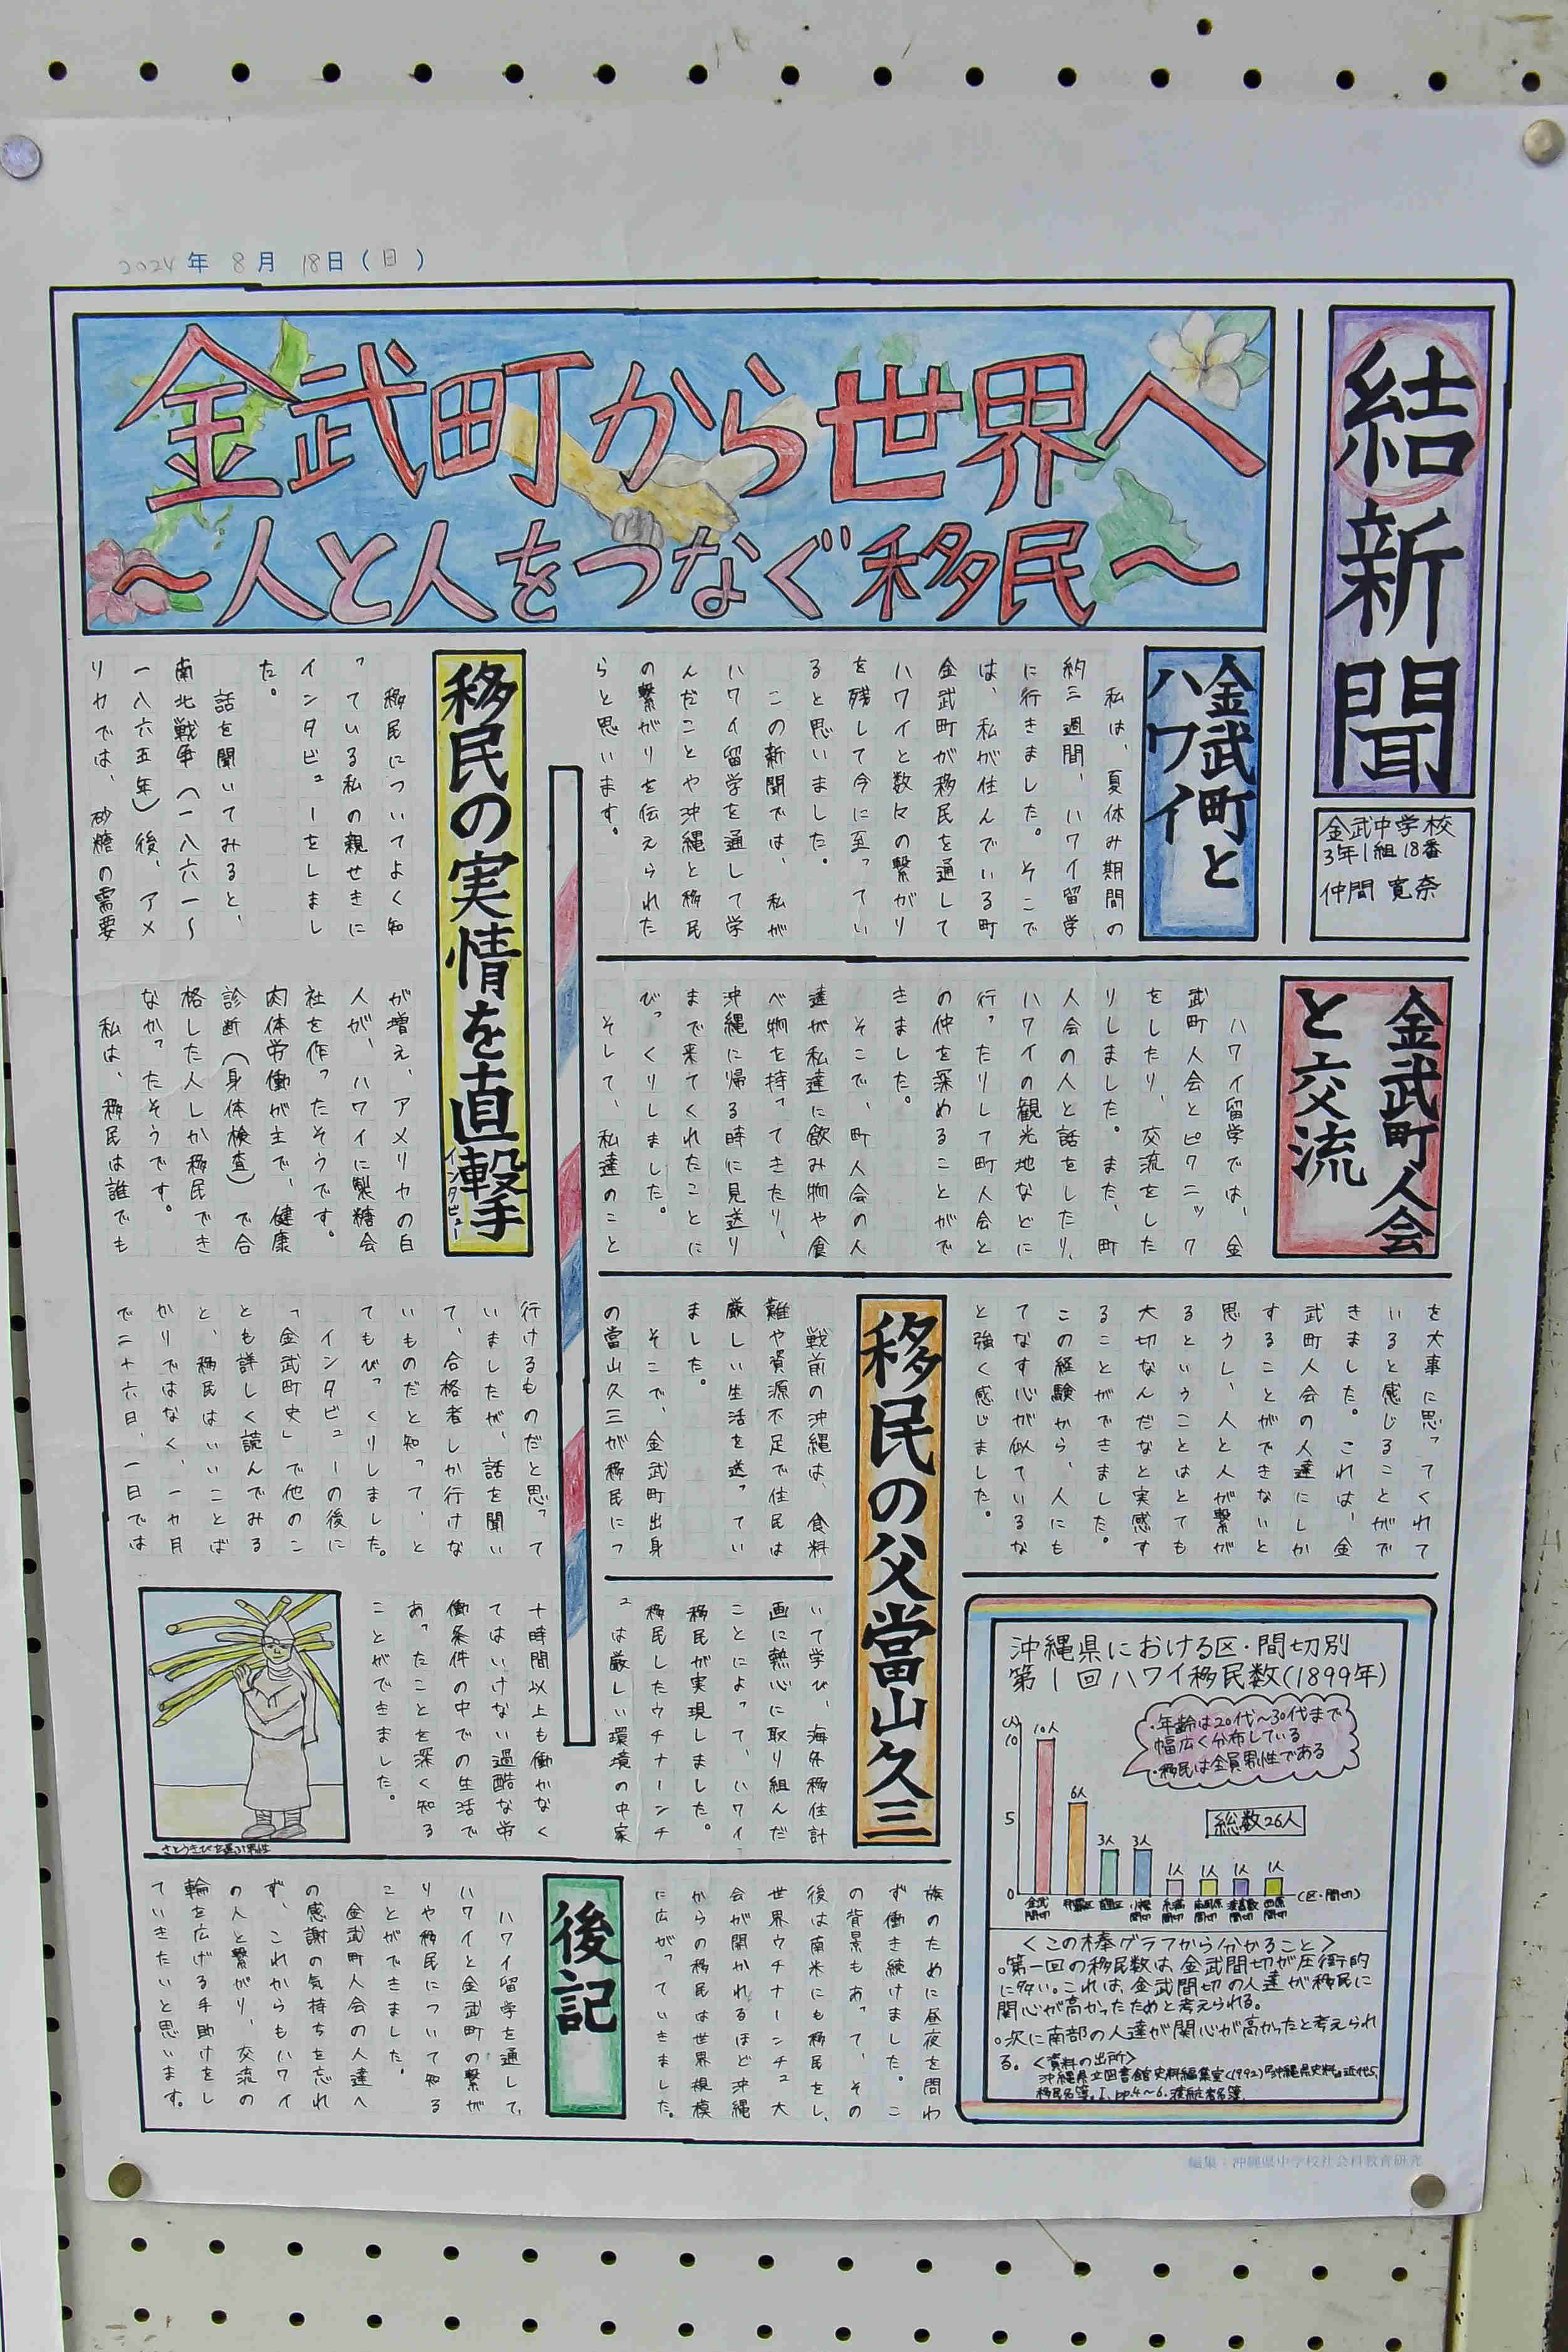 2024年 8月 18日(日)
結新聞
金武中学校
3年1組18番
仲間 寛奈
金武町から世界へ
〜人と人をつなぐ移民〜
金武町と
ハワイ
私は、夏休み期間の
約三週間、ハワイ留学
に行きました。そこで
は、私が住んでいる町
金武町が移民を通して
ハワイと数々の繋がり
を残して今に至ってい
ると思いました。
この新聞では、私が
ハワイ留学を通して学
んだことや沖縄と移民
の繋がりを伝えられた
らと思います。
金武町人会
と交流
ハワイ留学では、金
武町人会とピクニック
をしたり、交流をした
りしました。また、町
人会の人と話をしたり、
ハワイの観光地などに
行ったりして町人会と
の仲を深めることがで
きました。
そこで、町人会の人
達が私達に飲み物や食
べ物を持ってきたり、
沖縄に帰る時に見送り
まで来てくれたことに
びっくりしました。
そして、私達のこと
を大事に思ってくれて
いると感じることがで
きました。これは、金
武町人会の人達にしか
することができないと
思うし、人と人が繋が
るということはとても
大切なんだなと実感す
ることができました。
この経験から、人にも
てなす心が似ているな
と強く感じました。
移民の父當山久三
戦前の沖縄は、食料
難や資源不足で住民は
厳しい生活を送ってい
ました。
そこで、金武町出身
の當山久三が移民につ
いて学び、海外移住計
画に熱心に取り組んだ
ことによって、ハワイ
移民が実現しました。
移民したウチナーンチ
ュは厳しい環境の中家
族のために昼夜を問わ
ず働き続けました。こ
の背景もあって、その
後は南米にも移民をし、
世界ウチナーンチュ大
会が開かれるほど沖縄
からの移民は世界規模
に広がっていきました。
移民の実情を直撃
インタビュー
移民についてよく知
っている私の親せきに
インタビューをしまし
た。
話を聞いてみると、
南北戦争(一八六一〜
一八六五年)後、アメ
リカでは、砂糖の需要
が増え、アメリカの白
人が、ハワイに製糖会
社を作ったそうです。
肉体労働が主で、健康
診断(身体検査)で合
格した人しか移民でき
なかったそうです。
私は、移民は誰でも
行けるものだと思って
いましたが、話を聞い
て、合格者しか行けな
いものだと知って、と
てもびっくりしました。
インタビューの後に
「金武町史」で他のこ
とも詳しく読んでみる
と、移民はいいことば
かりではなく、一ヶ月
で二十六日、一日では
十時間以上も働かなく
てはいけない過酷な労
働条件の中での生活で
あったことを深く知る
ことができました。
さとうきびを運ぶ男性
後記
ハワイ留学を通して、
ハワイと金武町の繋が
りや移民について知る
ことができました。
金武町人会の人達へ
の感謝の気持ちを忘れ
ず、これからもハワイ
の人と繋がり、交流の
輪を広げる手助けをし
ていきたいと思います。
沖縄県における区・間切別
第1回ハワイ移民数(1899年)
・年齢は20代〜30代まで
幅広く分布している
・移民は全員男性である
総数26人
(人)
10
5
0
10人
6人
3人
3人
1人
1人
1人
1人
金武
間切
(区・間切)
<この棒グラフから分かること>
。第一回の移民数は、金武間切が圧倒的
に多い。これは、金武間切の人達が移民に
関心が高かったためと考えられる。
。次に南部の人達が関心が高かったと考えられ
る。
<資料の出所>
沖縄県立図書館史料編集室(1992)『沖縄県史料』近代5,
移民名簿Ⅰ, pp.4〜6.渡航者名簿
編集:沖縄県中学校社会科教育研究